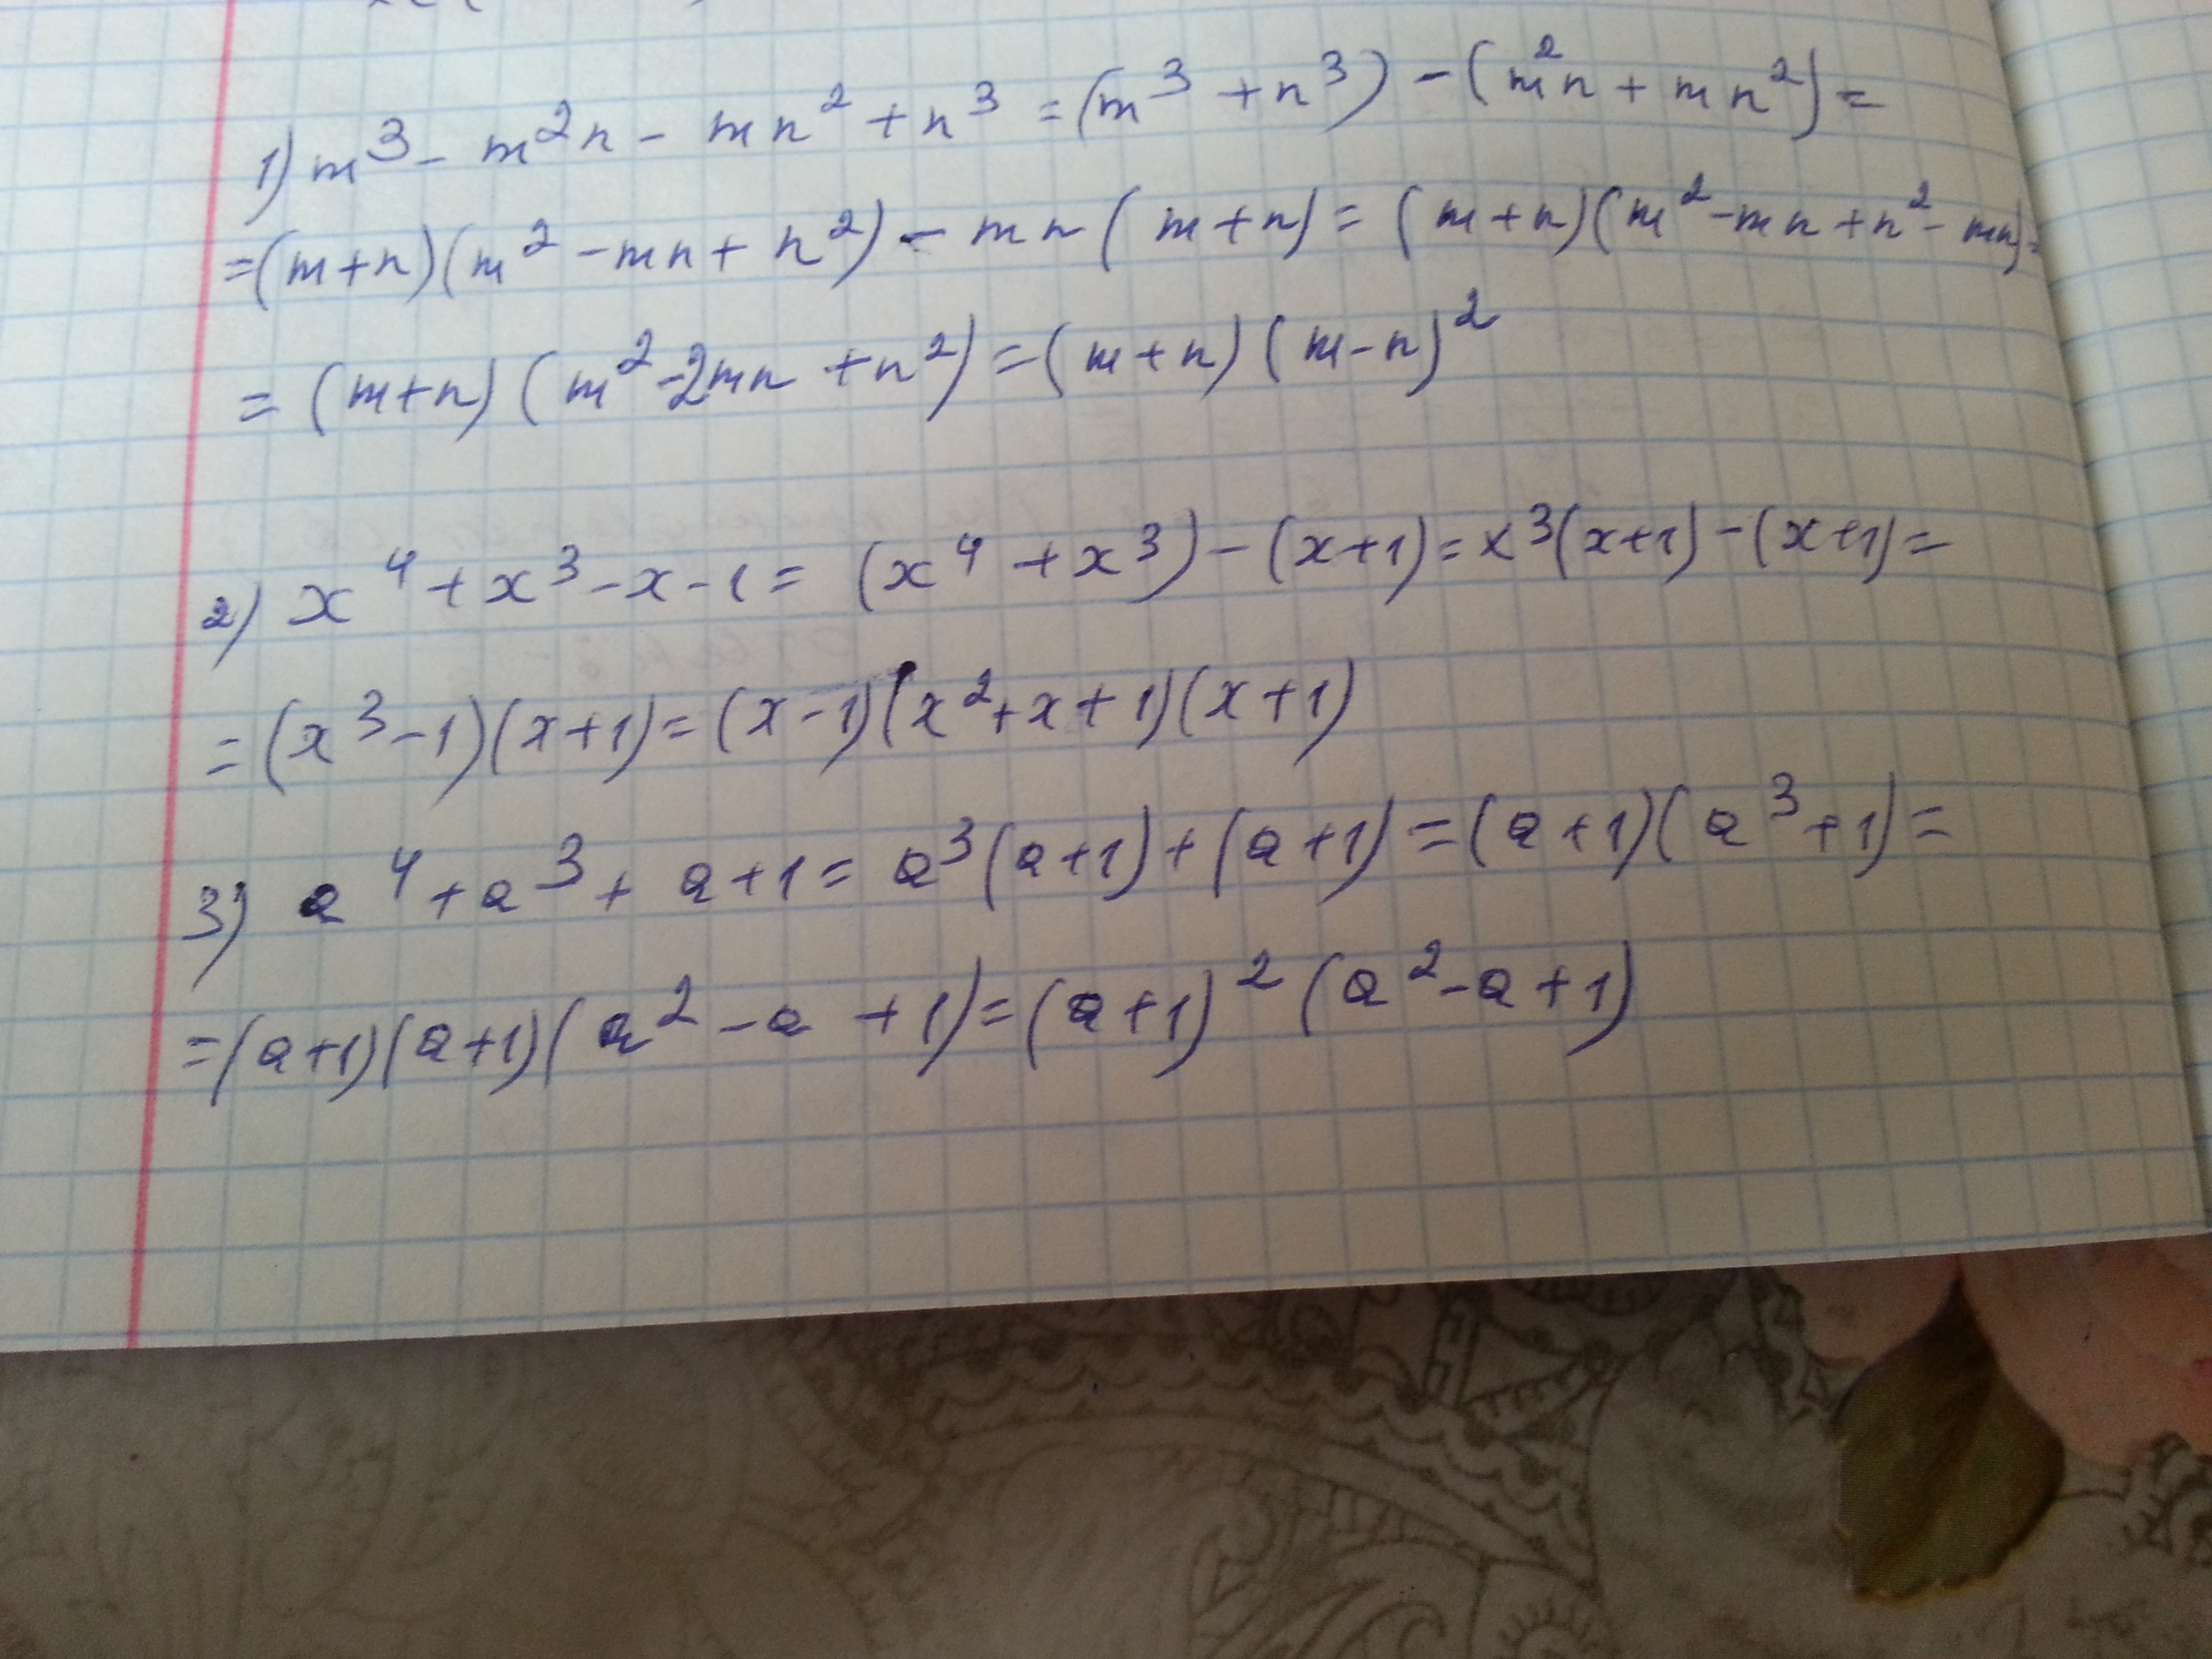 1) m³ - m²n - mn² + n³ = (m³ + n³) - (m²n + mn²) =
= (m+n)(m² - mn + n²) - mn(m+n) = (m+n)(m² - mn + n² - mn) =
= (m+n)(m² - 2mn + n²) = (m+n)(m-n)²
2) x⁴ + x³ - x - 1 = (x⁴ + x³) - (x+1) = x³(x+1) - (x+1) =
= (x³ - 1)(x+1) = (x-1)(x² + x + 1)(x+1)
3) a⁴ + a³ + a + 1 = a³(a+1) + (a+1) = (a+1)(a³ + 1) =
= (a+1)(a+1)(a² - a + 1) = (a+1)²(a² - a + 1)